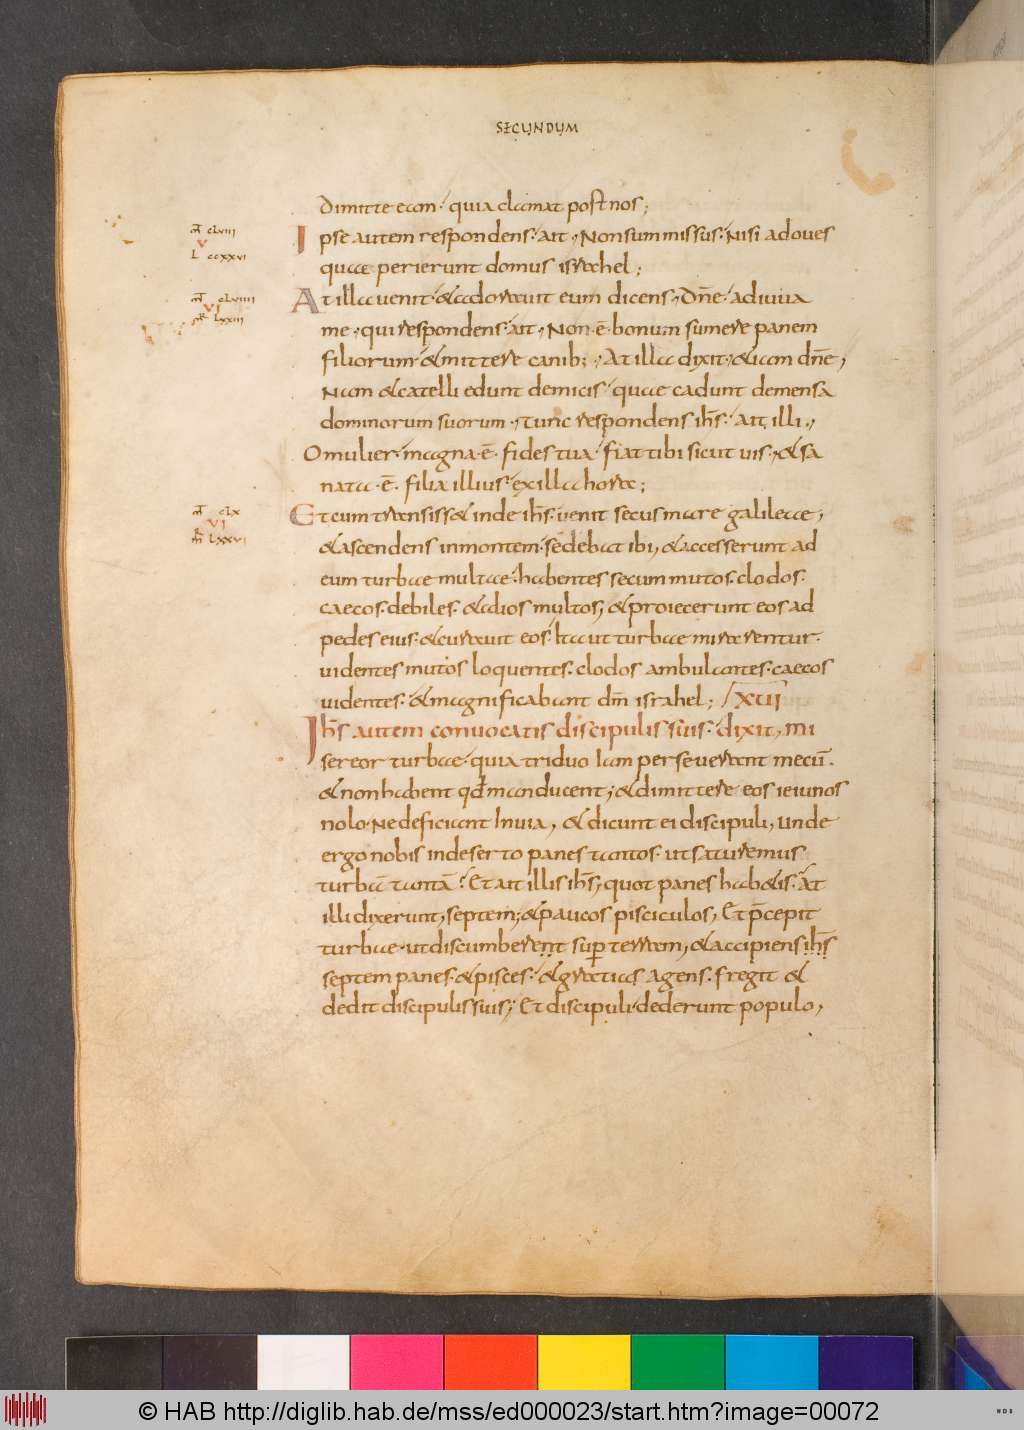 SECUNDUM
dimitte eam· quia clamat post nos;
mt clviii
v
L ccxxvi
Ipse autem respondens· ait, Non sum missus· Nisi ad oues
quae perierunt domus israhel;
mt clviiii
vi
mr lxxiii
At illa uenit· & adorauit eum dicens, dñe· adiuua
me, qui respondens· ait, Non· ē· bonum sumere panem
filiorum· & mittere canib;, At illa dixit· & iam dñe,
Nam & catelli edunt de micis· quae cadunt de mensa
dominorum suorum·, tunc respondens ihs̄· ait illi,
O mulier· magna· ē· fides tua· fiat tibi sicut uis·, & sa
nata· ē· filia illius· ex illa hora;
mt clx
vi
mr lxxvi
Et cum transiss& inde ihs̄· uenit secus mare galileae,
& ascendens in montem· sedebat ibi, & accesserunt ad
eum turbae multae· habentes secum mutos· clodos·
caecos· debiles· & alios multos, & proiecerunt eos ad
pedes eius· & curauit eos· Ita ut turbae mirarentur·
uidentes mutos loquentes· clodos ambulantes· caecos
uidentes· & magnificabant dm̄ israhel; XVII
Ihs̄ autem conuocatis discipulis suis· dixit, mi
sereor turbae· quia triduo Iam perseuerant mecū·
& non habent qd̄ manducent; & dimittere eos ieiunos
nolo· Ne deficiant In uia, & dicunt ei discipuli, unde
ergo nobis in deserto panes tantos· ut saturemus
turbā tantā? Et ait illis ihs̄, quot panes hab&is· At
illi dixerunt, septem; & paucos pisciculos, Et p̄cepit
turbae· ut discumberent sup terram, & accipiens ihs̄
septem panes· & pisces· & gratias agens· fregit &
dedit discipulis suis; Et discipuli· dederunt populo,
© HAB http://diglib.hab.de/mss/ed000023/start.htm?image=00072